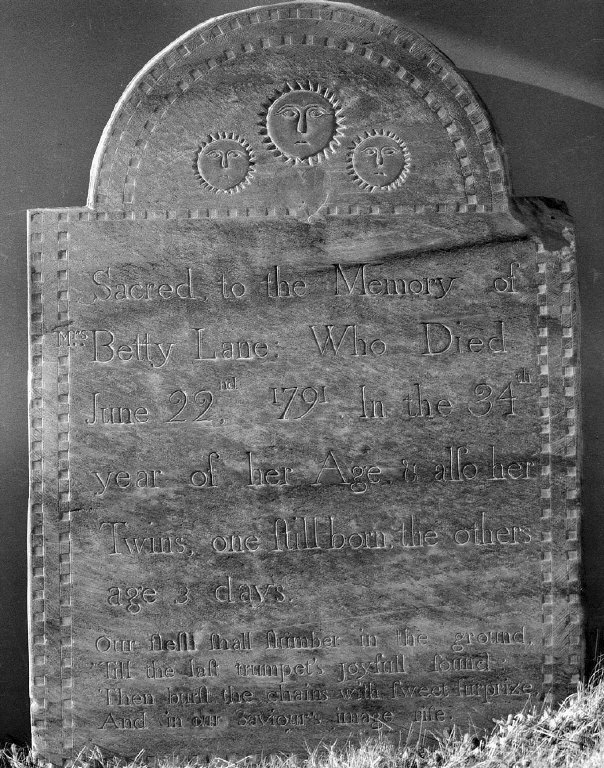 Sacred, to the Memory of
Mrs Betty Lane: Who Died
June 22nd, 1791. In the 34th
year of her Age, & alſo her
Twins, one ſtillborn, the others
age 3 days.
Our fleſh ſhall ſlumber in the ground,
'Till the laſt trumpet's joyfull ſound
Then burſt the chains with ſweet ſurprize,
And in our Saviour's image riſe.